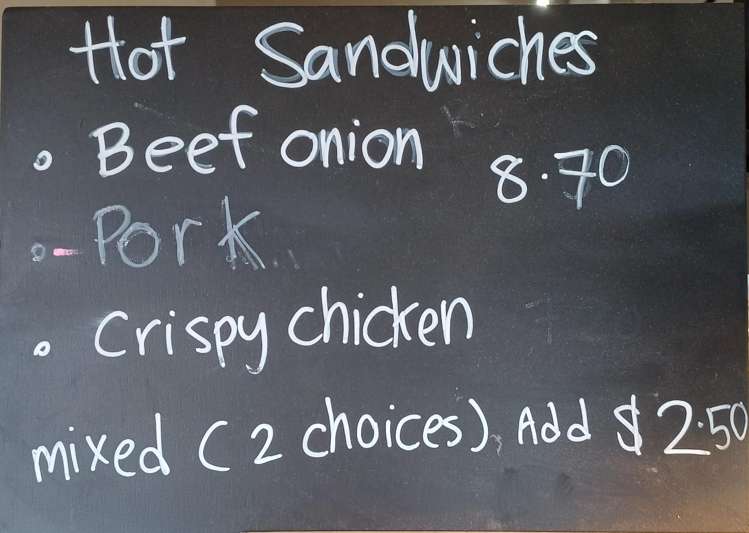 Hot Sandwiches
• Beef onion 8.70
• Pork
• Crispy chicken
mixed (2 choices), Add $2.50